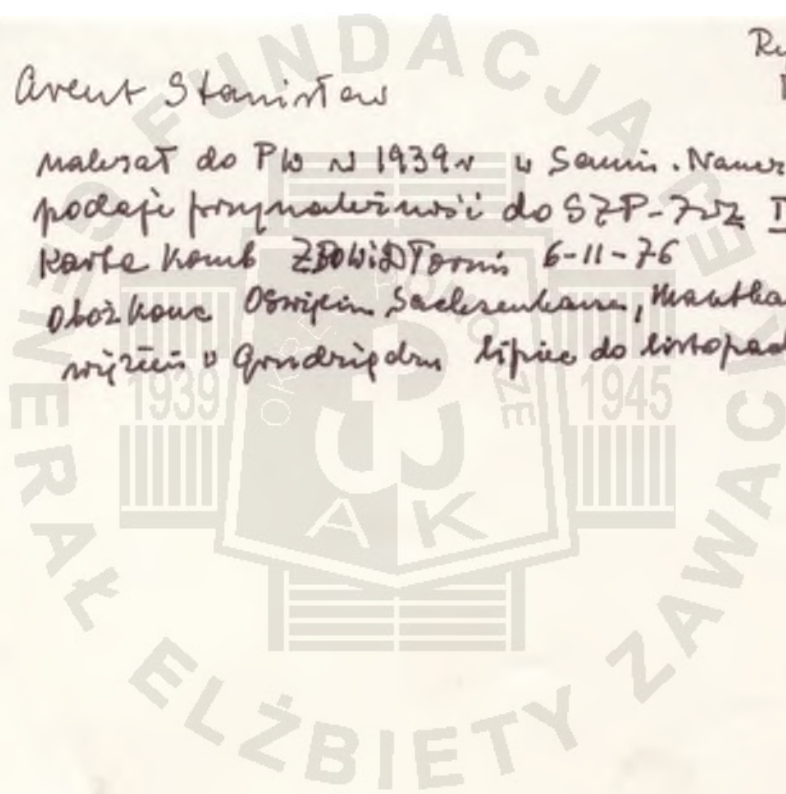 Arent Stanisław
należał do PW w 1939 r w
podaje przynależność do SZP-ZWZ
Karta komb ZBOWiD Toruń 6-11-76
Obóz konc Oświęcim Sachsenhausen,
więzień w Grudziądzu lipiec do listopad
FUNDACJA
GENERAŁ ELŻBIETY ZAWACK
OKRĘG POMORZE
1939 1945
AK